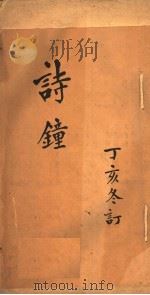 詩鐘
丁亥冬訂
mtoou.info